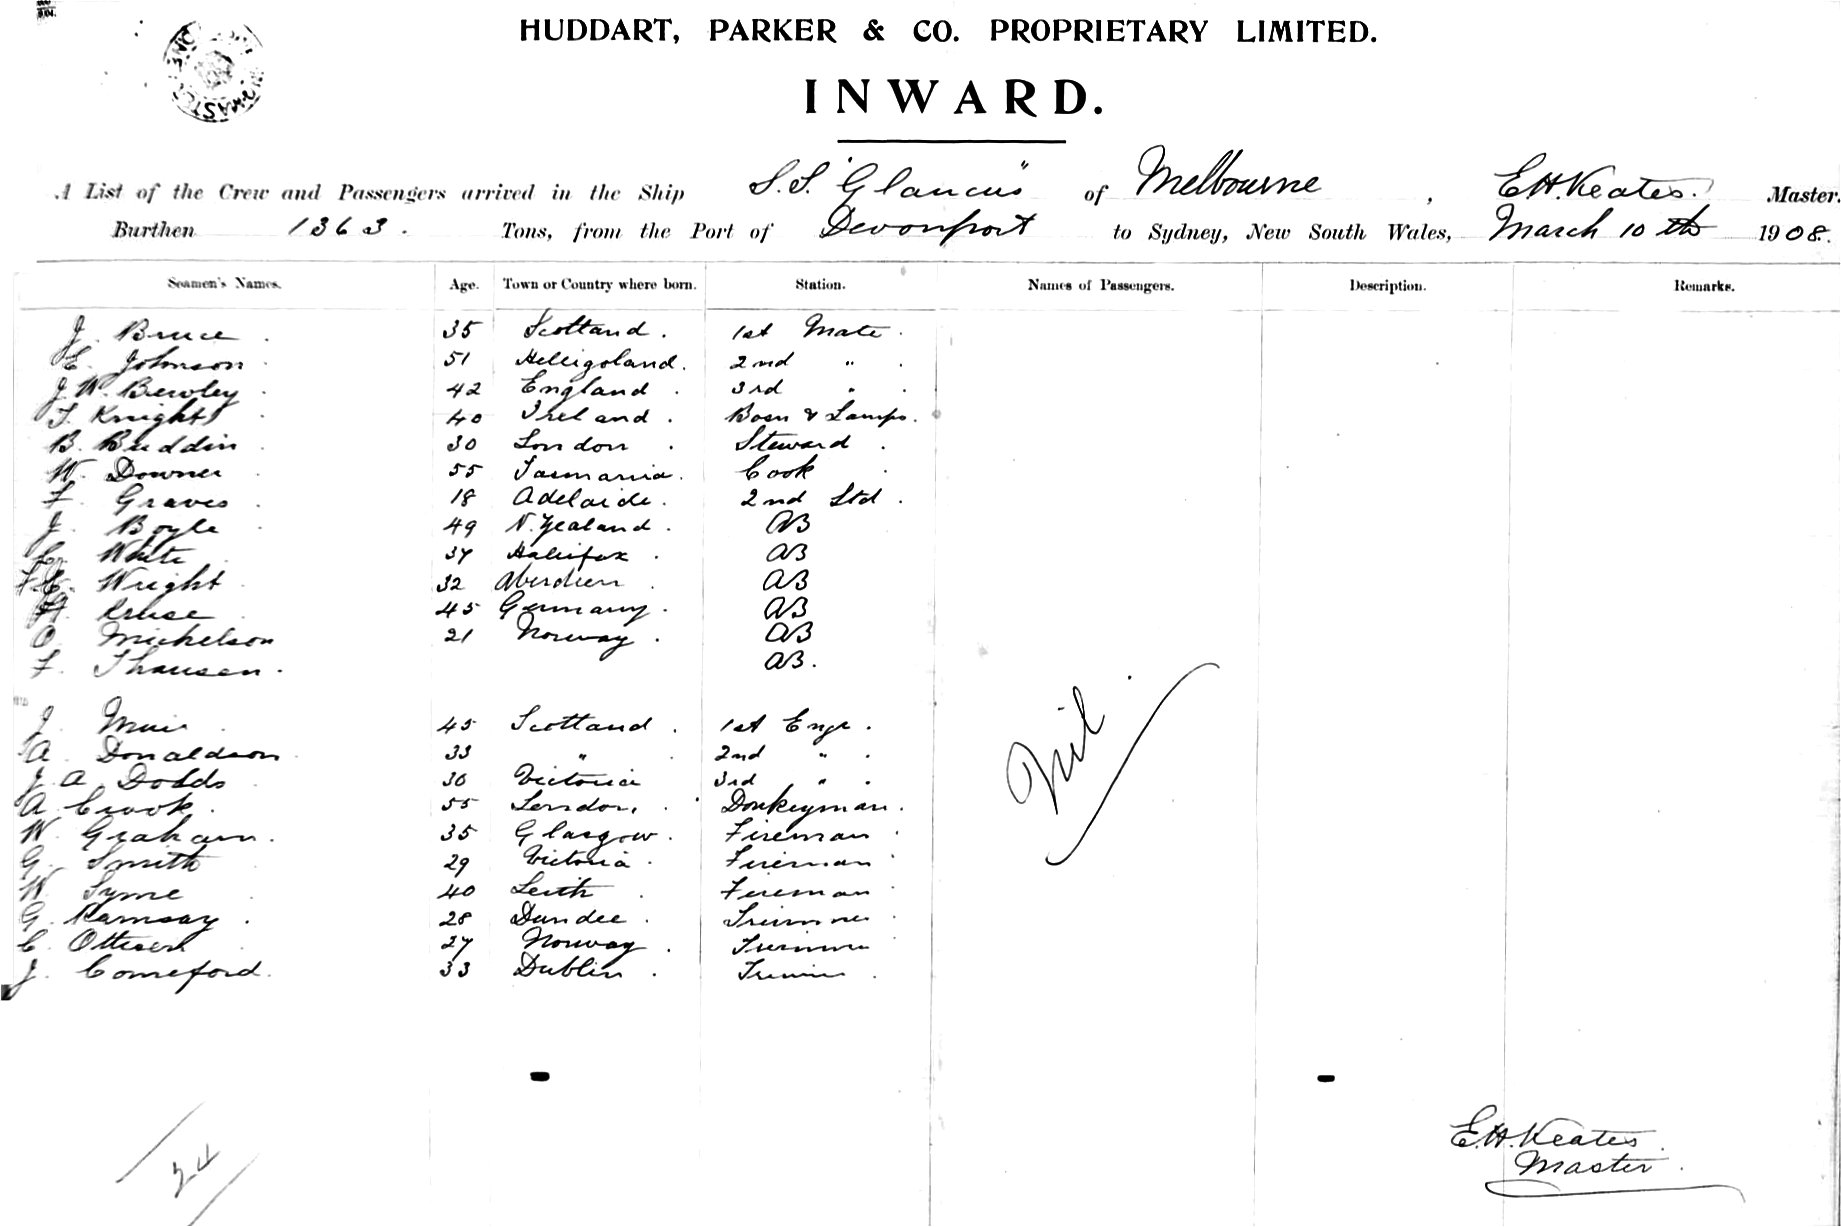 HUDDART, PARKER & CO. PROPRIETARY LIMITED.
INWARD.
A List of the Crew and Passengers arrived in the Ship S.S. "Glaucus" of Melbourne, E.H. Keates. Master.
Burthen 1363. Tons, from the Port of Devonport to Sydney, New South Wales, March 10th 1908.
Seamen's Names. Age. Town or Country where born. Station. Names of Passengers. Description. Remarks.
J. Bruce. 35 Scotland. 1st Mate.
E. Johnson. 51 Helligoland. 2nd " .
J. W. Bewley. 42 England. 3rd " .
T. Knight. 40 Ireland. Bosn & Lamps.
B. Buddin. 30 London. Steward.
W. Downer. 55 Tasmania. Cook.
F. Graves. 18 Adelaide. 2nd Std.
J. Boyle. 49 N. Zealand. AB
White. 37 Halifax. AB
Wright. 32 Aberdeen. AB
Kruse. 45 Germany. AB
O. Mickelson 21 Norway. AB
F. Thausen. AB.
J. Muir. 45 Scotland. 1st Engr.
A. Donaldson. 33 " . 2nd " .
J. A. Dodds 30 Victoria 3rd " .
A. Crook. 55 London. Donkeyman.
W. Graham. 35 Glasgow. Fireman.
G. Smith 29 Victoria. Fireman.
W. Syme 40 Leith. Fireman.
G. Ramsay. 28 Dundee. Trimmer.
C. Ottesen. 27 Norway. Trimmer
J. Comeford. 33 Dublin. Trimmer.
Nil.
24
E.H. Keates.
Master.